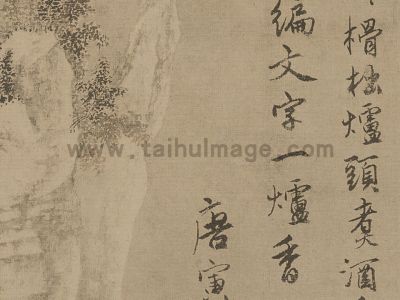 榾柮爐頭煮酒
編文字一爐香
唐寅
www.taihuImage.com